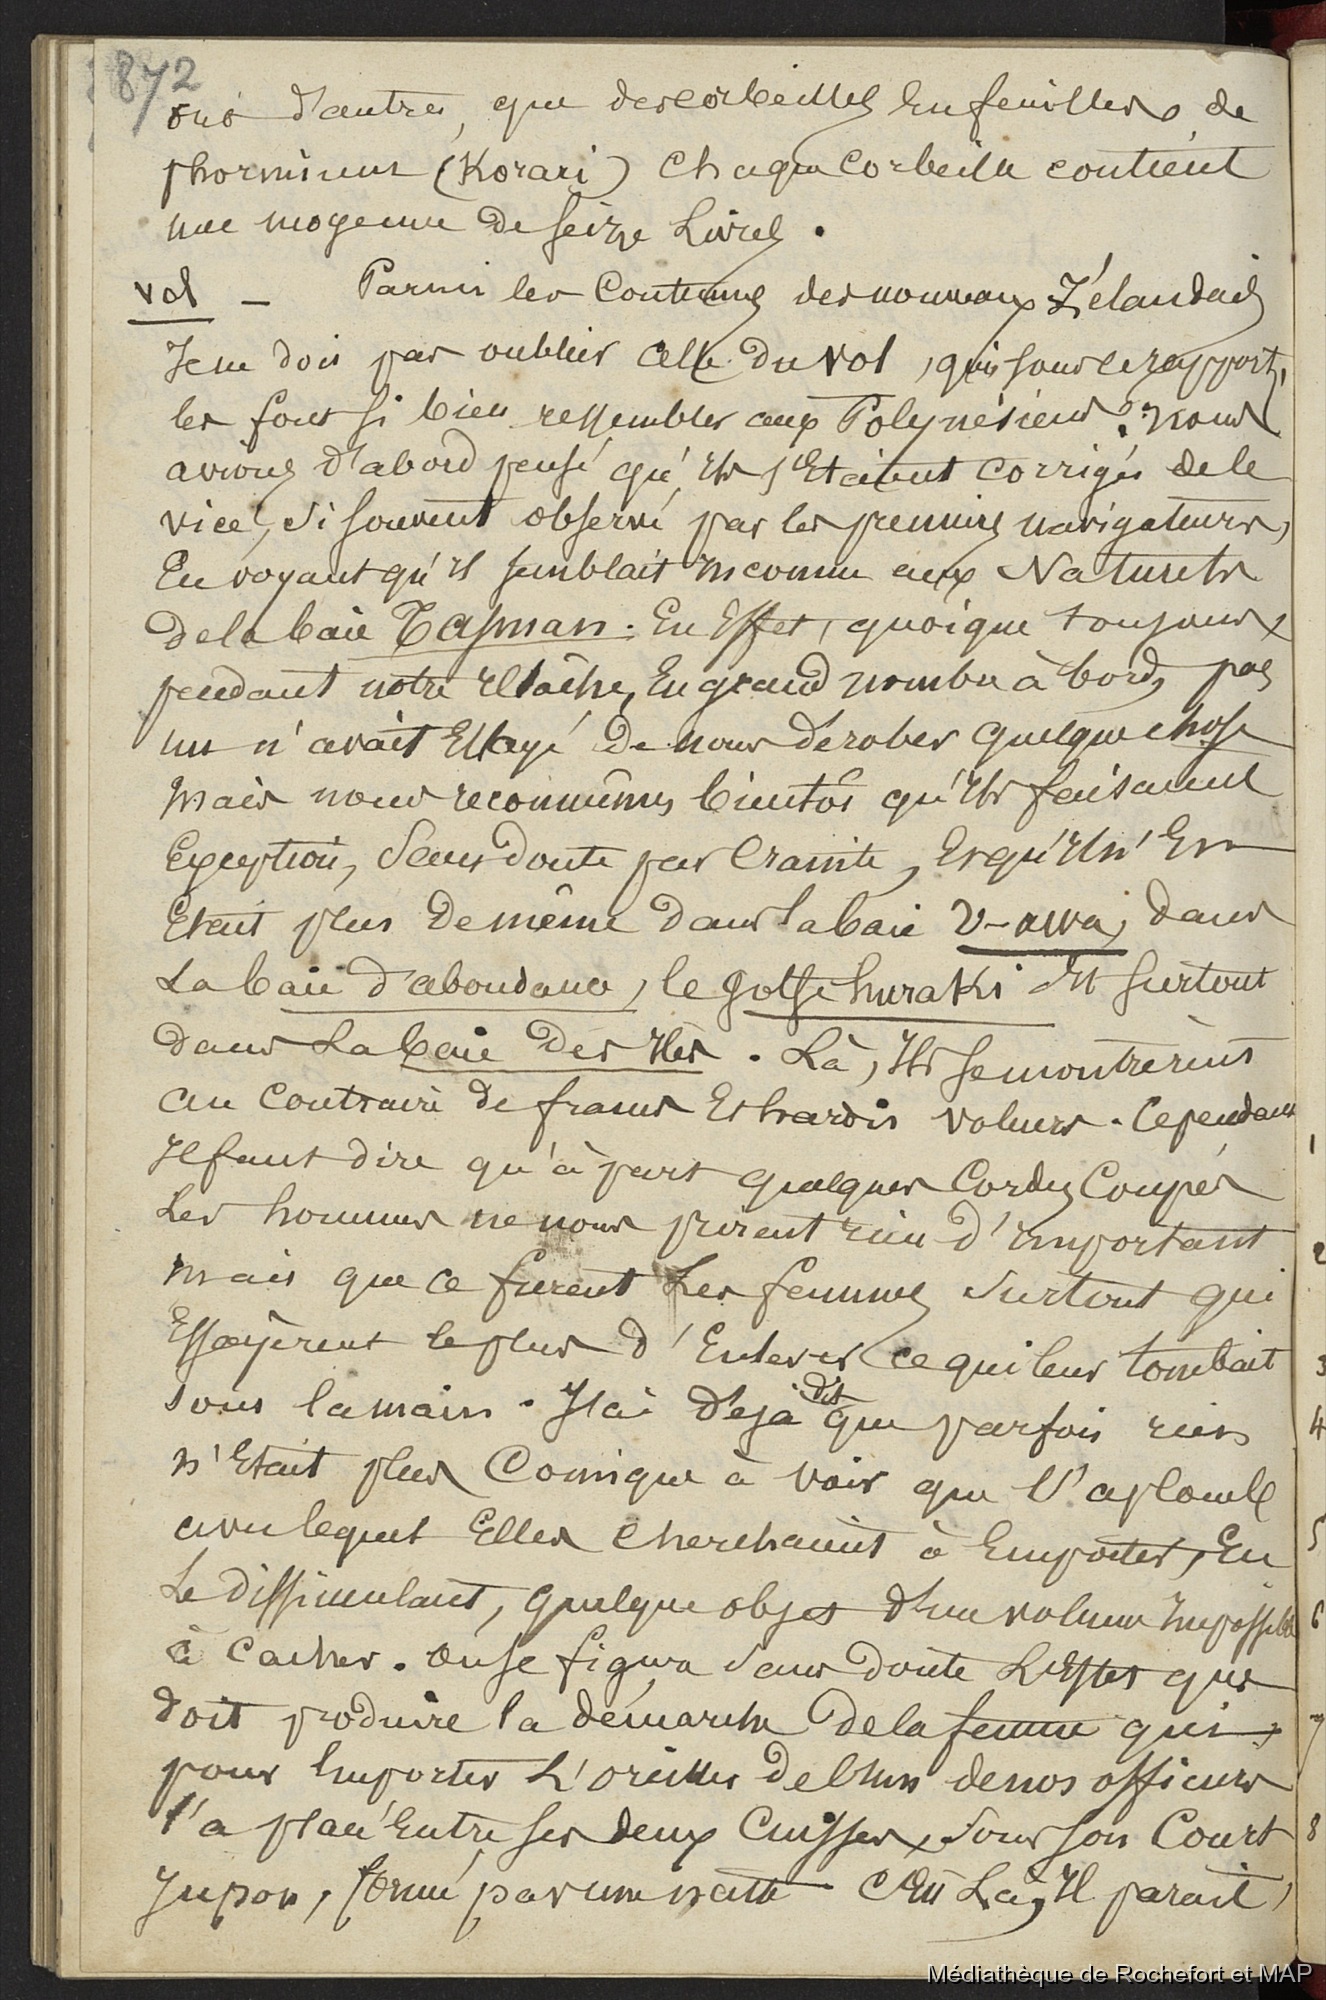 872
d'autres, que des corbeilles en feuilles de
phormium (Korari) chaque corbeille contient
une moyenne de seize livres.
vol — Parmi les coutumes des nouveaux Zélandais
Je ne dois pas oublier celle du vol, qui sous ce rapport,
les font si bien ressembler aux Polynésiens. nous
avions d'abord pensé qu'ils s'étaient corrigés de le
vice, si souvent observé par les premiers navigateurs,
En voyant qu'il semblait inconnu aux Naturels
de la baie Tasman. En Effet, quoique toujours,
pendant notre relâche, En grand nombre à bord, pas
un n'avait Essayé de nous dérober quelque chose
mais nous reconnûmes bientôt qu'ils faisaient
Exception, sans doute par crainte, Et qu'il n'En
Etait plus de même dans la baie U-awa, dans
La baie d'abondance, le golfe huraki Et surtout
dans La baie des Iles. Là, Ils se montrèrent
au contraire de francs Et hardis voleurs. Cependant
Il faut dire qu'à part quelques Cordes Coupées
Les hommes ne nous prirent rien d'important
mais que ce furent Les femmes surtout qui
Essayèrent le plus d'Enlever ce qui leur tombait
sous la main. J'ai déjà dit que parfois rien
n'Etait plus Comique à voir que l'aplomb
avec lequel Elles cherchaient à Emporter, En
Le dissimulant, quelque objet d'un volume Impossible
à cacher. On se figura sans doute L'Effet que
doit produire la démarche de la femme qui,
pour Emporter L'oreiller de l'un de nos officiers
l'a placé Entre ses deux Cuisses, sous son Court
Jupon, formé par une natte. C'Est Là, Il parait,
1
2
3
4
5
6
7
8
Médiathèque de Rochefort et MAP